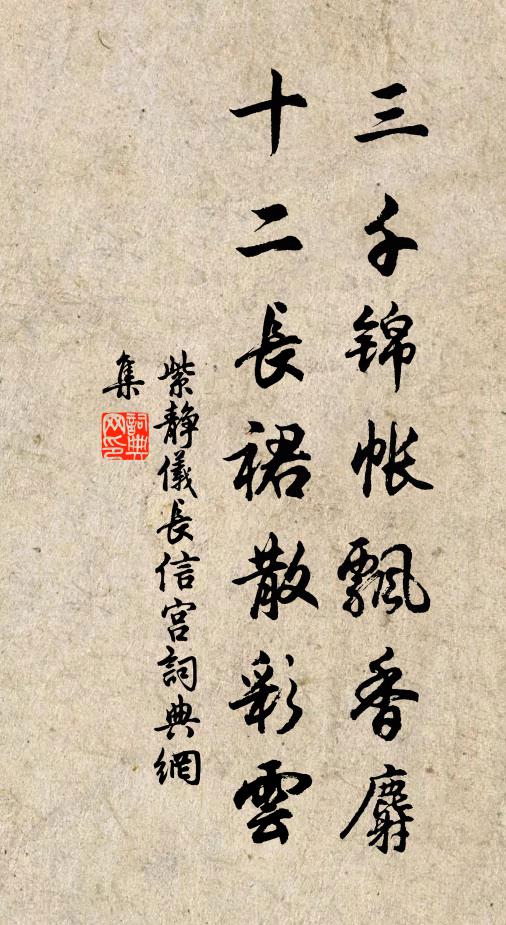 三千錦帳飄香麝
十二長裙散彩雲
紫靜儀長信宮詞典網
集
詞典
网印